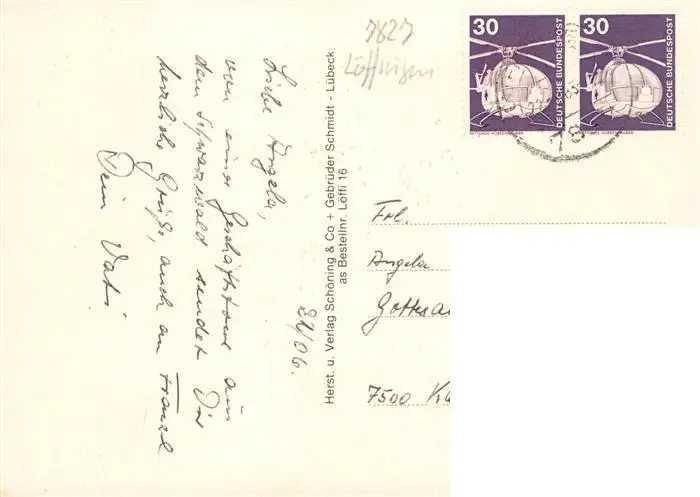 Liebe Angela,
von einer Geschäftstour aus
dem Schwarzwald sendet Dir
herzliche Grüße, auch an Franzl
Dein Vati
22/06.
Herst. u. Verlag Schöning & Co + Gebrüder Schmidt - Lübeck
as Bestellnr. Löffi 16
7827
Löffingen
30
DEUTSCHE BUNDESPOST
RETTUNGS-HUBSCHRAUBER
30
DEUTSCHE BUNDESPOST
RETTUNGS-HUBSCHRAUBER
Frl.
Angela
Gottesau
7500 Ka